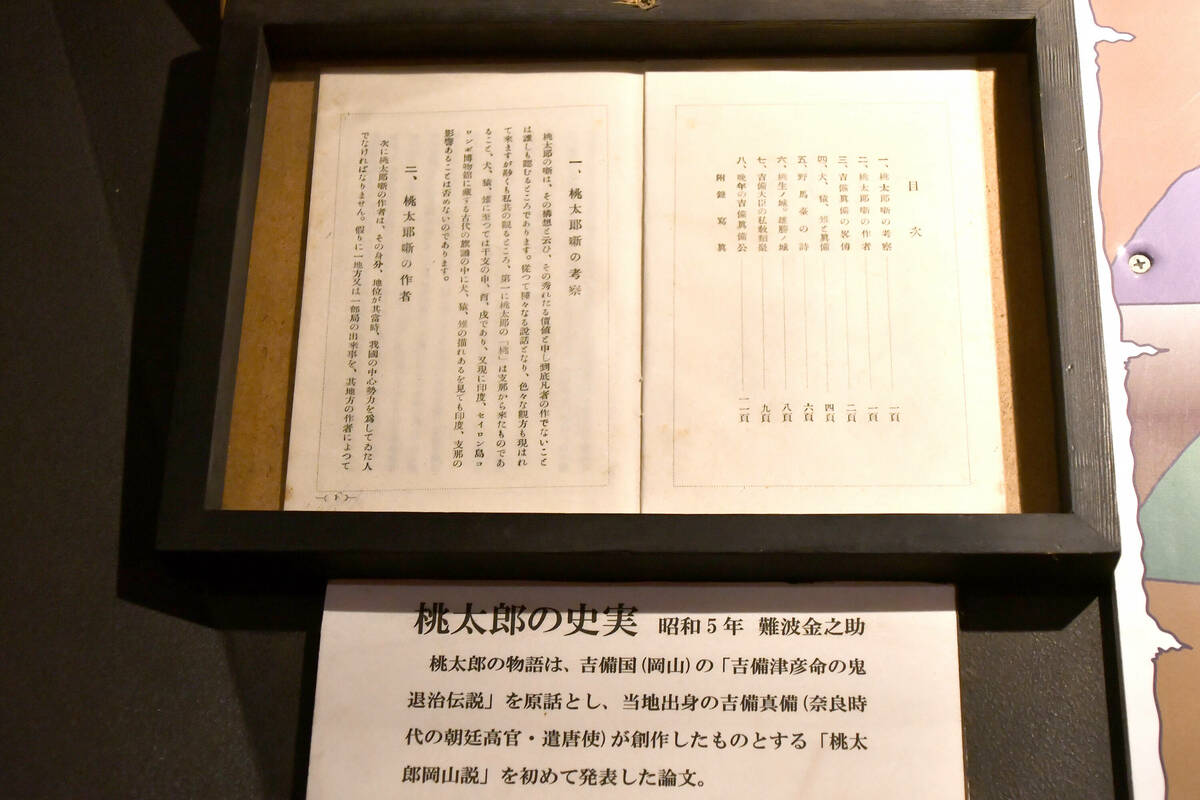 目次
一、桃太郎噺の考察 一頁
二、桃太郎噺の作者 一頁
三、吉備眞備の畧傳 二頁
四、犬、猿、雉と眞備 四頁
五、野馬臺の詩 六頁
六、桃生ノ城。雄勝ノ城 八頁
七、吉備大臣の私敎類聚 九頁
八、晩年の吉備眞備公 一一頁
附錄寫眞
一、桃太郎噺の考察
桃太郎の噺は、その構想と云ひ、その秀れたる價値と申し到底凡者の作でないこと
は誰しも認むるところであります。從つて種々なる說話となり、色々な觀方も現はれ
て來ますが尠くも私共の觀るところ、第一に桃太郎の「桃」は支那から來たものであ
ること、犬、猿、雉に至つては干支の申、酉、戌であり、又現に印度、セイロン島コ
ロンボ博物館に藏する古代の旗誦の中に犬、猿、雉の描れあるを見ても印度、支那の
影響あることは否めないのであります。
二、桃太郎噺の作者
次に桃太郎噺の作者は、その身分、地位が其當時、我國の中心勢力を爲してゐた人
でなければなりません。假りに一地方又は一部局の出來事を、其地方の作者によつて
桃太郎の史実 昭和5年 難波金之助
桃太郎の物語は、吉備国(岡山)の「吉備津彦命の鬼
退治伝説」を原話とし、当地出身の吉備真備(奈良時
代の朝廷高官・遣唐使)が創作したものとする「桃太
郎岡山説」を初めて発表した論文。